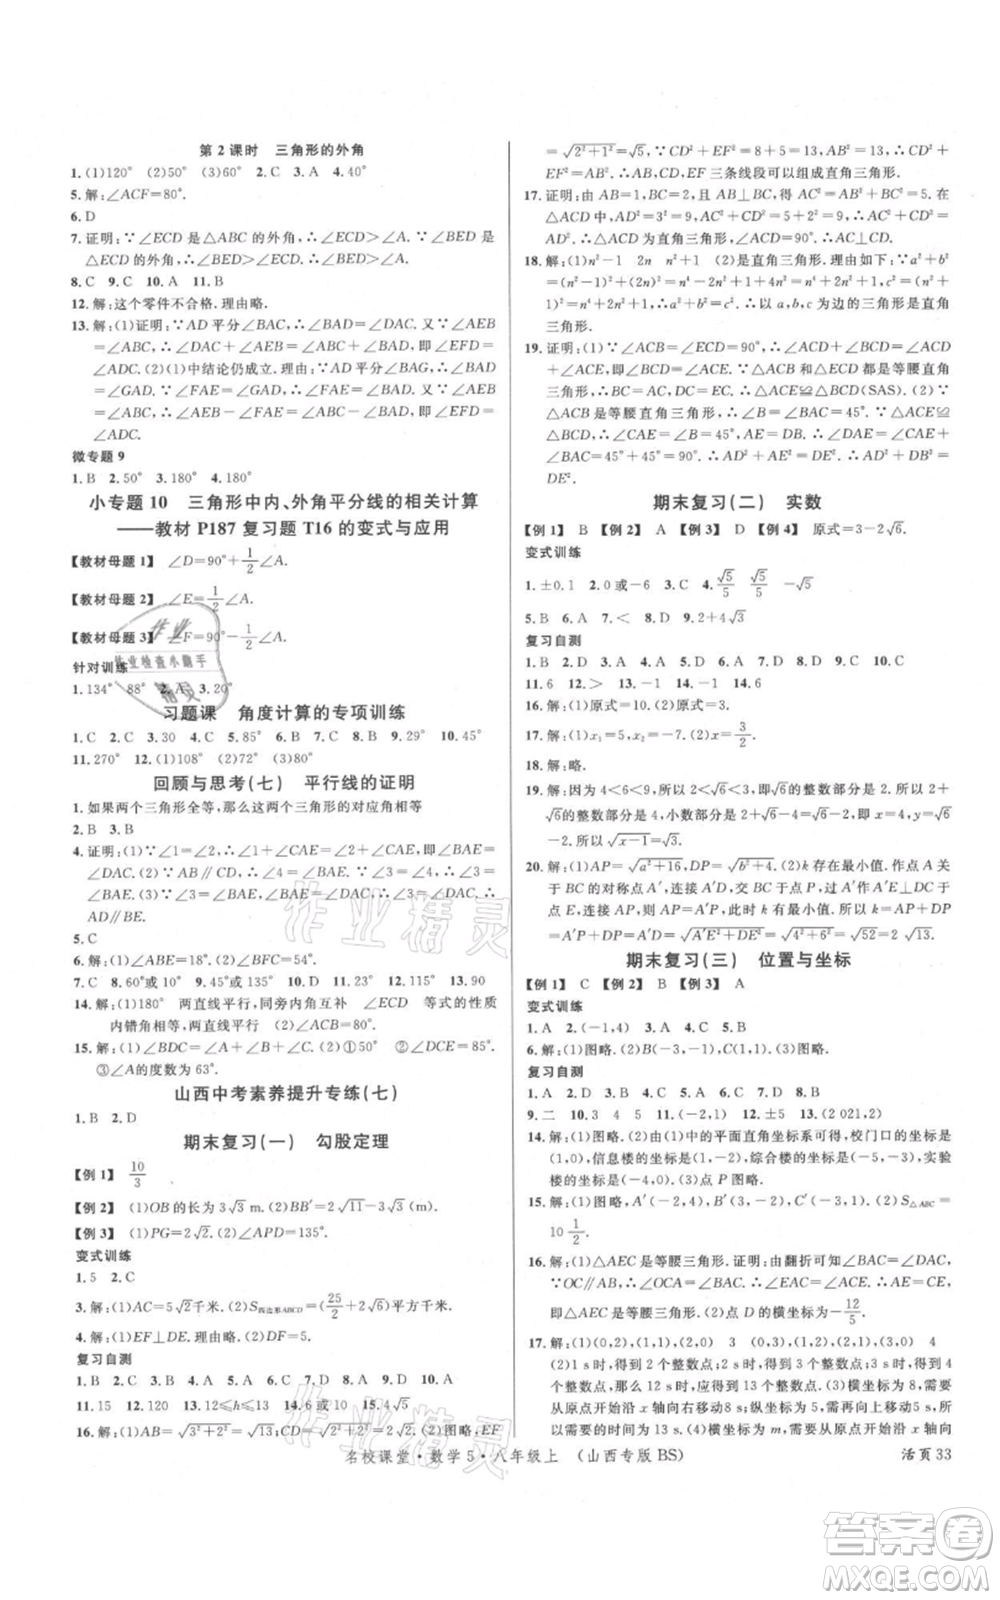 第2课时　三角形的外角
1.(1)120°　(2)50°　(3)60°　2.C　3.A　4.40°
5.解:∠ACF=80°.
6.D
7.证明:∵∠ECD是△ABC的外角,∴∠ECD>∠A.∵∠BED是
△ECD的外角,∴∠BED>∠ECD.∴∠BED>∠A.
8.C　9.C　10.A　11.B
12.解:这个零件不合格.理由略.
13.解:(1)证明:∵AD平分∠BAC,∴∠BAD=∠DAC.又∵∠AEB
=∠ABC,∴∠DAC+∠AEB=∠BAD+∠ABC,即∠EFD=
∠ADC.(2)(1)中结论仍成立.理由:∵AD平分∠BAG,∴∠BAD
=∠GAD.∵∠FAE=∠GAD,∴∠FAE=∠BAD.又∵∠AEB=
∠ABC,∴∠AEB-∠FAE=∠ABC-∠BAD,即∠EFD=
∠ADC.
微专题9
1.B　2.50°　3.180°　4.180°
小专题10　三角形中内、外角平分线的相关计算
——教材P187复习题T16的变式与应用
【教材母题1】　∠D=90°+1/2∠A.
【教材母题2】　∠E=1/2∠A.
【教材母题3】　∠F=90°-1/2∠A.
针对训练
1.134°　88°　2.A　3.20°
习题课　角度计算的专项训练
1.C　2.C　3.30　4.C　5.85°　6.B　7.B　8.B　9.29°　10.45°
11.270°　12.(1)100°　(2)72°
回顾与思考(七)　平行线的证明
1.如果两个三角形全等,那么这两个三角形的对应角相等
2.B　3.B
4.证明:(1)∵∠1=∠2,∴∠1+∠CAE=∠2+∠CAE,即∠BAE=
∠DAC.(2)∵AB∥CD,∴∠4=∠BAE.∵∠3=∠4,∴∠3=
∠BAE.∵∠BAE=∠DAC,∴∠3=∠DAC.
AD∥BE.
5.C
6.解:(1)∠ABE=18°.(2)∠BFC=54°.
7.C　8.60°或10　9.45或135　10.D　11.D　12.15　13.90
14.解:(1)180°　两直线平行,同旁内角互补　∠ECD　等式的性质
内错角相等,两直线平行　(2)∠ACB=80°.
15.解:(1)∠BDC=∠A+∠B+∠C.理由略.(2)①50°　②85°
③∠A的度数为63°.
山西中考素养提升专练(七)
1.B　2.D
期末复习(一)　勾股定理
【例1】　10/3
【例2】　(1)OB的长为3√3 m.(2)BB′=√11-√3(m).
【例3】　(1)PG=2√2.(2)∠APD=135°.
变式训练
1.5　2.C
3.解:(1)AC=5√2千米.(2)S四边形ABCD=(25/2+2√6)平方千米.
4.解:(1)EF⊥DE.理由略.(2)EF=5.
复习自测
1.B　2.D　3.B　4.A　5.B　6.C　7.C　8.C　9.D　10.A
11.15　12.120　13.12≤h≤13　14.6或10　15.4√10
16.解:(1)AB=√4²+2²=2√5,CD=√2²+2²=2√2.(2)∵EF
=√2²+1²=√5,∴CD²+EF²=8+5=13,AB²=20.∴CD²+
EF²≠AB².∴以AB,CD,EF三条线段不可以组成直角三角形.
17.证明:由AB=1,BC=2,且AB⊥BC,得AC²=AB²+BC²=5.在
△ACD中,AC²+CD²=5+4=9=AD²,∴∠ACD=90°.∴AC⊥CD.
18.解:(1)n²-1　2n　n²+1　(2)是直角三角形.理由:∵a²+b²=
(n²-1)²+(2n)²=n⁴-2n²+1+4n²=n⁴+2n²+1,c²=(n²+
1)²=n⁴+2n²+1,∴a²+b²=c².∴以a,b,c为边的三角形是直角
三角形.
19.证明:(1)∵∠ACB=∠ECD=90°,∴∠ACB-∠ACD=∠ECD
-∠ACD,即∠BCD=∠ACE.∵△ACB和△ECD都是等腰直角
三角形,∴BC=AC,DC=EC.∴△ACE≌△BCD(SAS).(2)∵
△ACB是等腰直角三角形,∴∠B=∠BAC=45°.∵△ACE≌
△BCD,∴∠CAE=∠B=45°,AE=BD.∴∠DAE=∠CAE+
∠BAC=45°+45°=90°.∴AD²+AE²=DE².∴AD²+DB²=
DE².
期末复习(二)　实数
【例1】　B　【例2】　A　【例3】　D　【例4】　原式=3-2√6.
变式训练
1.±0.1　2.0或-6　3.C　4.√5/5　√5/5　-√5
5.B　6.A　7.<　8.D　9.2+4√3
复习自测
1.B　2.D　3.B　4.A　5.A　6.D　7.B　8.A　9.C　10.C
11.6　12.>　13.1　14.-1　15.1　14.6
16.解:(1)原式=10.(2)原式=3.
17.解:(1)x₁=5,x₂=-3.(2)x=3/2.
18.解:略.
19.解:因为4<6<9,所以2<√6<3.所以√6的整数部分是2.所以2+
√6的整数部分是x=2+2=4,小数部分y=2+√6-4=√6
-2.所以√x-1=√3.
20.解:(1)AP=√a²+16,DP=√b²+4.(2)存在最小值.作点A关
于BC的对称点A′,连接A′D,A′P,过A′作A′E⊥DC交DC于
点E,连接AP,则AP=A′P,∴AP+DP最小值=A′P+
DP=A′D=√A′E²+DE²=√4²+6²=√52=2√13.
期末复习(三)　位置与坐标
【例1】　C　【例2】　B　【例3】　A
变式训练
1.A　2.(-1,4)　3.A　4.C　5.B
6.解:(1)图略.(2)图略.B(-3,-5).
复习自测
1.A　2.D　3.D　4.A　5.D　6.B　7.A　8.A
9.二　10.3　4　5　11.(-2,1)　12.±5　13.(2 021,2)
14.解:(1)图略.(2)由(1)中的平面直角坐标系可得,校门口的坐标为
(1,0),信息楼的坐标为(1,-2),综合楼的坐标为(-5,-3),实验
楼的坐标为(-4,0).(3)点P图略.
15.解:(1)图略.A′(-2,4),B′(2,-2),C′(-3,1).(2)S△ABC=
10 1/2.
16.解:(1)△AEC是等腰三角形.证明:由翻折可得∠BAC=∠DAC,
∵OC∥AB,∴∠BAC=∠ACE.∴∠DAC=∠ACE.∴AE=CE,
即△AEC是等腰三角形.(2)点D的横坐标为-12/5.
17.解:(1)(0,2),(1,1),(2,0)　3　(0,3),(1,2),(2,1),(3,0)　4
(2)1s时,得到2个整数点;2s时,得到3个整数点;3s时,得到4
个整数点,那么12s时,应得到13个整数点.(3)横坐标为8,需要
从原点开始沿x轴向右移动8s;纵坐标为2,需要再向上移动2s,
所以需要的时间是10s.(4)横坐标为m,需要从原点开始沿x轴向
名校课堂·数学5·八年级上　(山西专版BS)　活页33
作业
作业检查小助手
精灵
作业精灵
作业精灵
答案圈
MXQE.COM